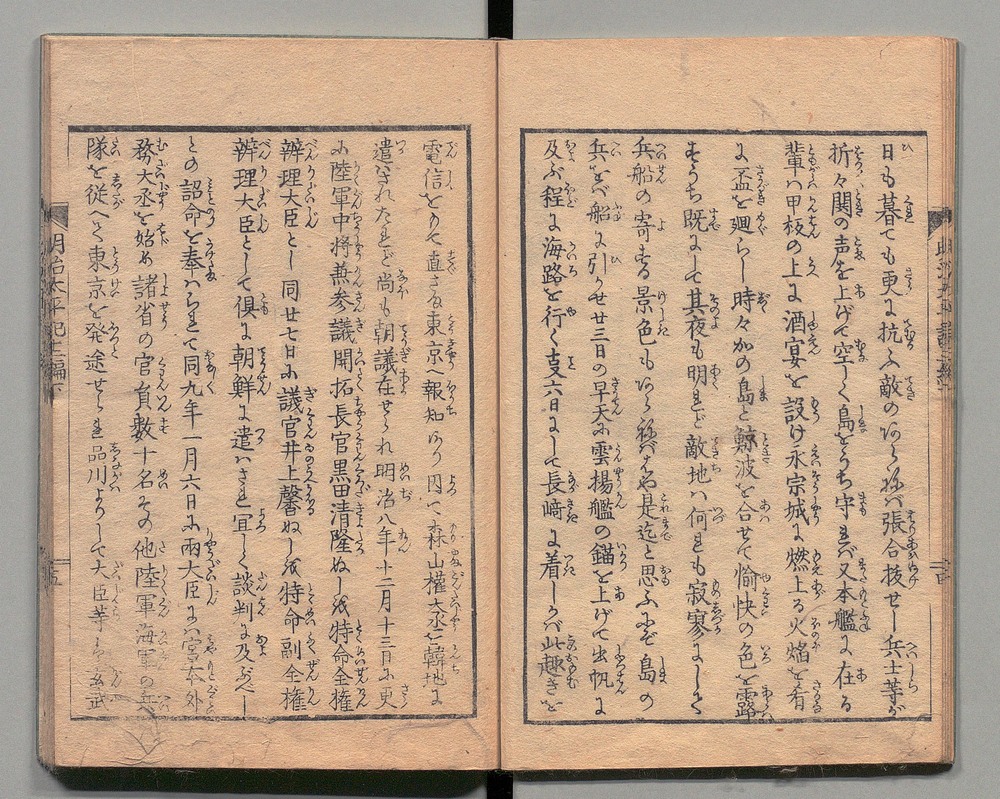 日も暮ても更に抗ふ敵のあらねバ張合抜せし兵士等が
折々関の声を上げて空しく島をうち守れバ又本艦に在る
輩ハ甲板の上に酒宴を設け永宗城に燃上る火焔を肴
に盃を廻らし時々加の島と鯨波を合せて愉快の色を露
すうち既にして其夜も明れど敵地ハ何れも寂寥として
兵船の寄する景色もあらねバ今ハ是迄と思ふにぞ島の
兵をバ船に引かせ廿三日の早天に雲揚艦の錨を上げて出帆に
及ぶ程に海路を行く支六日にして長崎に着しかバ此趣きを
電信をもて直さま東京へ報知あり因て森山権大丞を韓地に
遣されたれど尚も朝議在せられ明治八年十二月十三日に更
に陸軍中将兼参議開拓長官黒田清隆ぬしを特命全権
辨理大臣とし同廿七日に議官井上馨ぬしを特命副全権
辨理大臣として倶に朝鮮に遣ハされ宜しく談判に及ぶべし
との詔命を奉ハられて同九年一月六日に両大臣にハ宮本外
務大丞を始め諸省の官員数十名その他陸軍海軍の兵
隊を従へて東京を発途せられ品川よりして大臣等ハ玄武
明治太平記十一編下
十五